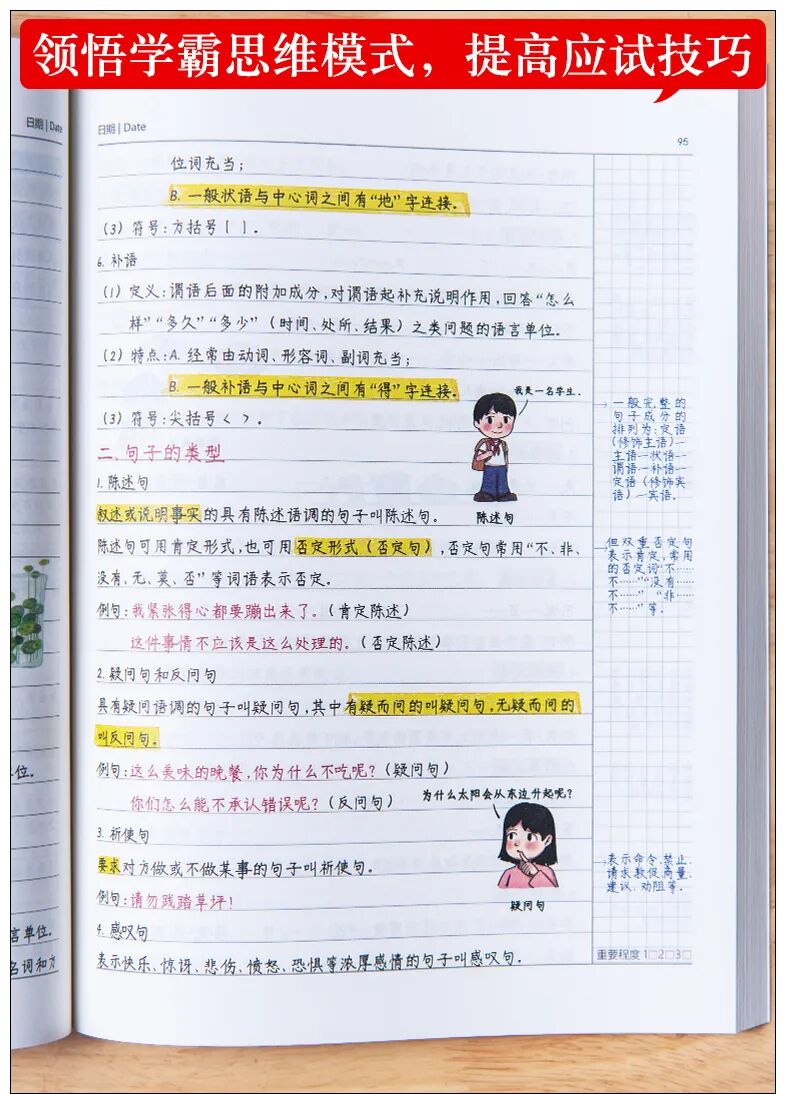 领悟学霸思维模式，提高应试技巧
日期 | Date
日期 | Date
95
位词充当；
B. 一般状语与中心词之间有“地”字连接.
(3) 符号：方括号[ ].
6. 补语
(1) 定义：谓语后面的附加成分，对谓语起补充说明作用，回答“怎么
样”“多久”“多少”（时间、处所、结果）之类问题的语言单位.
(2) 特点：A. 经常由动词、形容词、副词充当；
B. 一般补语与中心词之间有“得”字连接.
(3) 符号：尖括号< >.
二、句子的类型
1. 陈述句
叙述或说明事实的具有陈述语调的句子叫陈述句.
陈述句可用肯定形式，也可用否定形式（否定句），否定句常用“不、非、
没有、无、莫、否”等词语表示否定.
例句：我紧张得心都要蹦出来了.（肯定陈述）
这件事情不应该是这么处理的.（否定陈述）
2. 疑问句和反问句
具有疑问语调的句子叫疑问句，其中有疑而问的叫疑问句，无疑而问的
叫反问句.
例句：这么美味的晚餐，你为什么不吃呢？（疑问句）
你们怎么能不承认错误呢？（反问句）
3. 祈使句
要求对方做或不做某事的句子叫祈使句.
例句：请勿践踏草坪！
4. 感叹句
表示快乐、惊讶、悲伤、愤怒、恐惧等浓厚感情的句子叫感叹句.
我是一名学生.
陈述句
为什么太阳会从东边升起呢？
疑问句
一般完整的
句子成分的
排列为：定语
(修饰主语)—
主语—状语—
谓语—补语—
定语（修饰宾
语）—宾语.
但双重否定句
表示肯定，常用
的否定词“不……
不……”“没有……
不……” “非……
不……”等.
表示命令、禁止、
请求、敦促、商量、
建议、劝阻等.
重要程度 1□2□3□
单位.
言单位.
名词和方